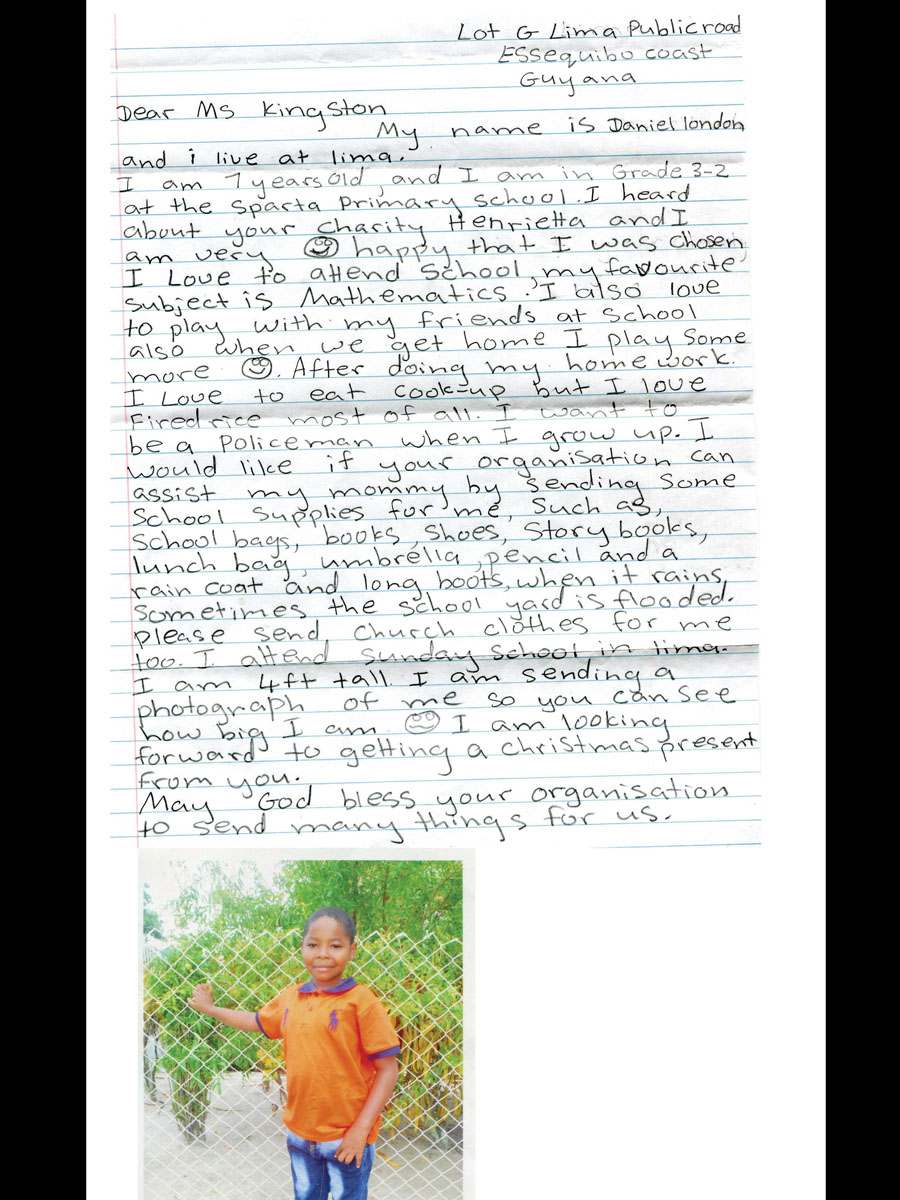 Lot G Lima Public road
Essequibo coast
Guyana
Dear Ms Kingston
My name is Daniel london
and i live at lima.
I am 7 years old, and I am in Grade 3-2
at the Sparta Primary School. I heard
about your charity Henrietta and I
am very happy that I was chosen
I Love to attend School, my favourite
subject is Mathematics. I also love
to play with my friends at School
also when we get home I play some
more. After doing my home work.
I Love to eat cook-up but I love
Fired rice most of all. I want to
be a Policeman when I grow up. I
would like if your organisation can
assist my mommy by sending Some
School Supplies for me, Such as,
School bags, books, Shoes, Story books,
lunch bag, umbrella, pencil and a
rain coat and long boots, when it rains,
Sometimes the school yard is flooded.
please send, church clothes for me
too. I attend Sunday School in lima.
I am 4ft tall. I am sending a
photograph of me so you can see
how big I am. I am looking
forward to getting a christmas present
from you.
May God bless your organisation
to send many things for us.